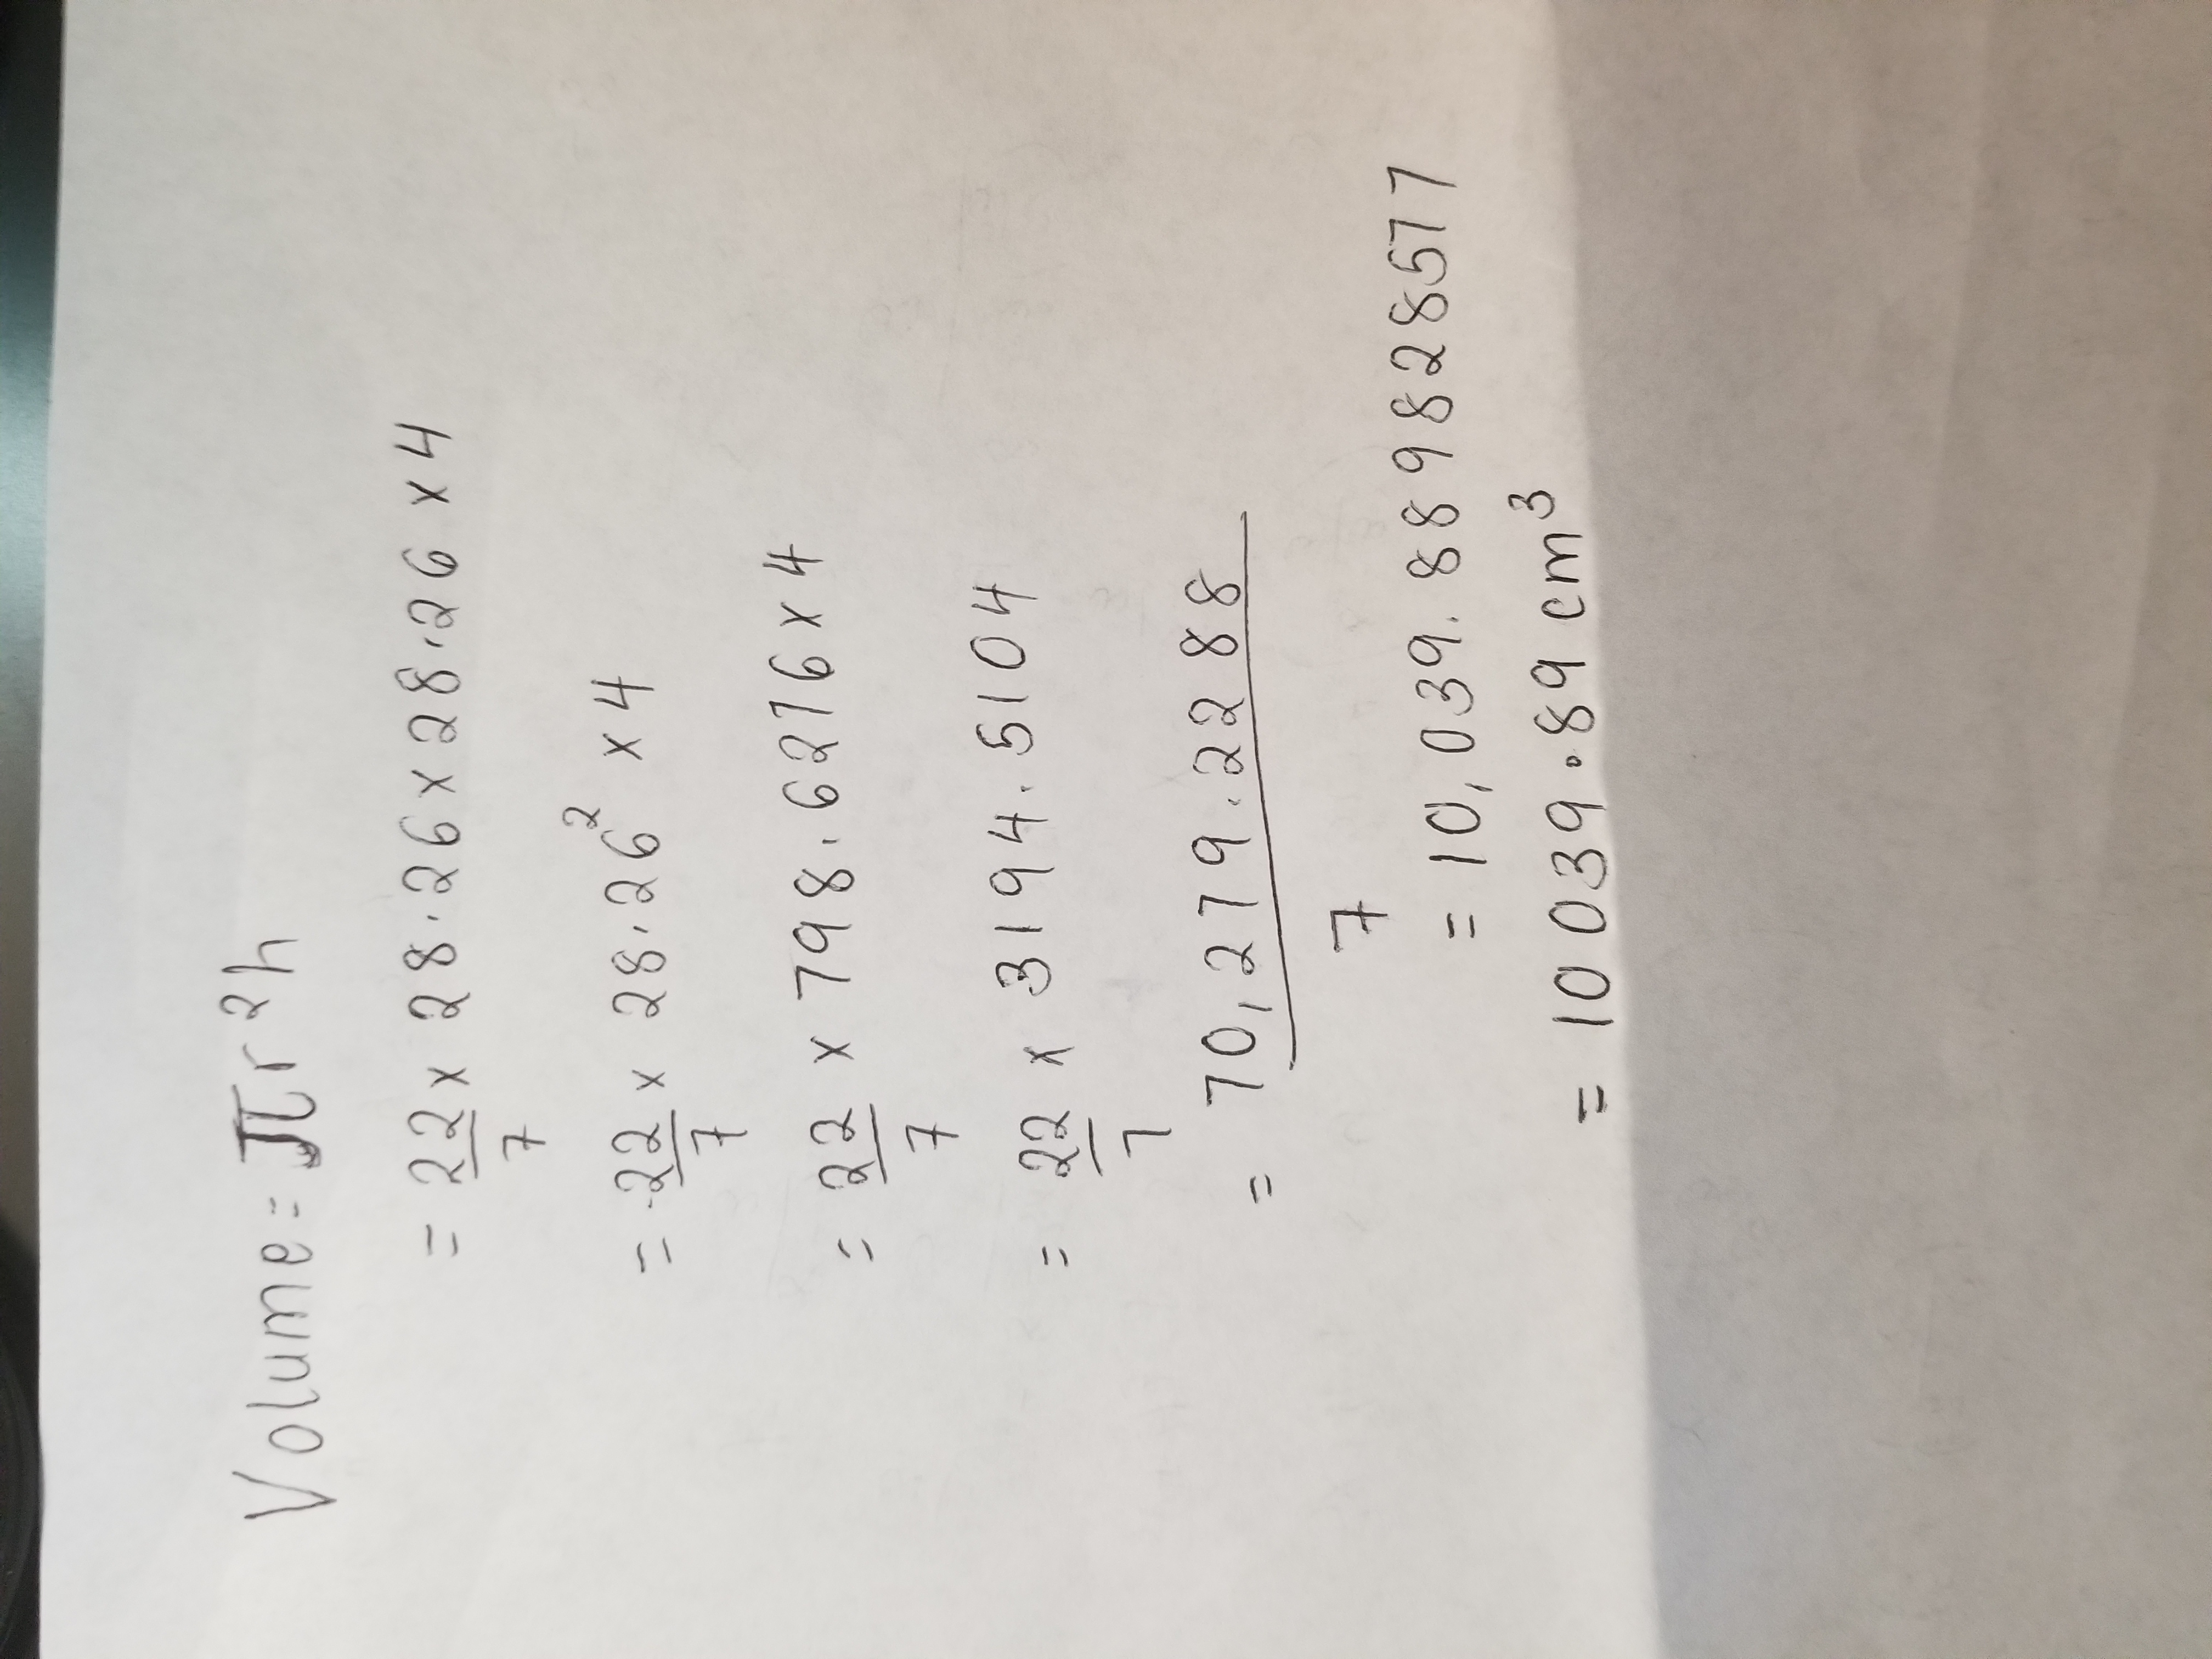 Volume = πr²h
= 22/7 × 28.26 × 28.26 × 4
= 22/7 × 28.26² × 4
= 22/7 × 798.6276 × 4
= 22/7 × 3194.5104
= 70,279.2288/7
= 10,039.889828577
= 10 039.89 cm³